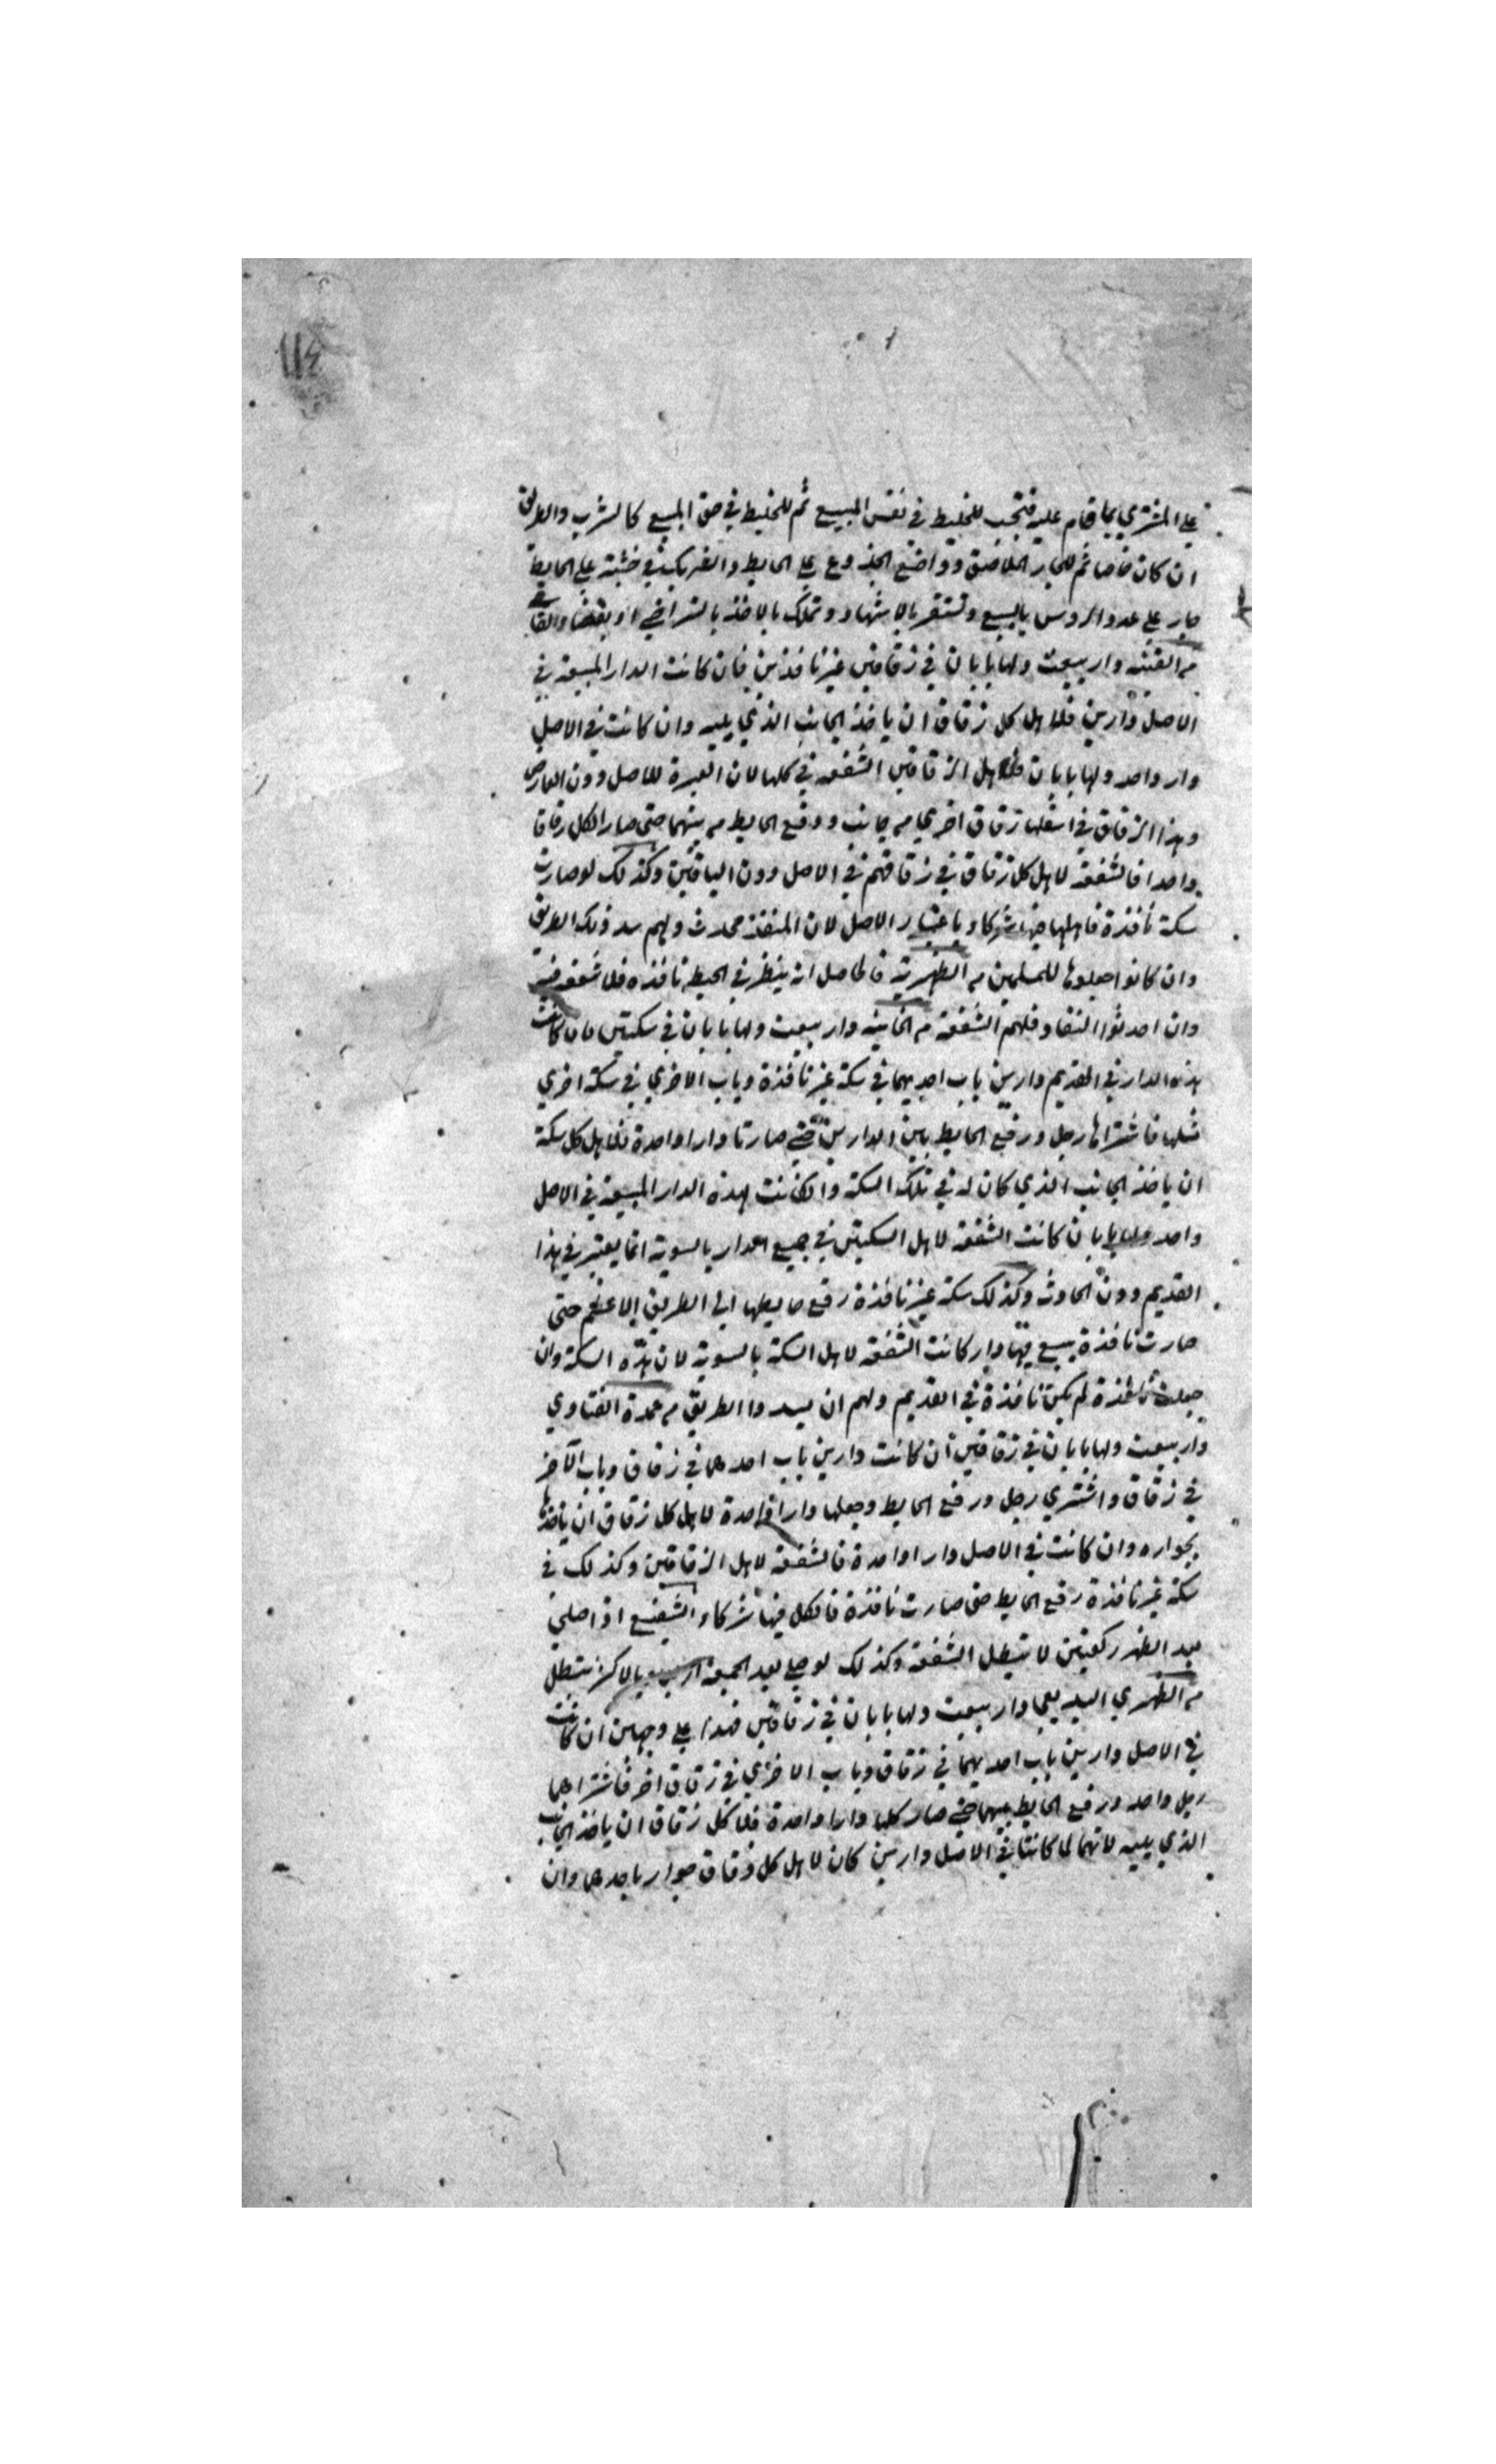 ١١٤
علي المشتري بما قام عليه فتجب للخليط في نفس المبيع ثم للخليط في حق المبيع كالشرب والطريق
ان كان خاصا ثم للجار الملاصق وواضع الجذوع علي الحايط والشريك في خشبة علي الحايط
جار علي عدد الروس بالبيع وتستقر بالاشهاد وتملك بالاخذ بالتراضي او بقضاء القاضي
من القنيه دار بيعت ولها بابان في زقاقين غير نافذين فان كانت الدار المبيعة في
الاصل دارين فلاهل كل زقاق ان ياخذ الجانب الذي يليه وان كانت في الاصل
دار واحد ولها بابان فلاهل الزقاقين الشفعه في كلها لان العبرة للاصل دون العارض
وهذا الزقاق في اسفلها زقاق اخري من جانب ورفع الحايط من بينهما حتي صار الكل زقاقا
واحدا فالشفعة لاهل كل زقاق في زقاقهم في الاصل دون الباقين وكذلك لو صارت
سكة نافذة فاهلها فيها شركاء باعتبار الاصل لان المنفذ محدث ولهم سد ذلك الطريق
وان كانوا جعلوها للمسلمين من الظهيرية فالحاصل انه ينظر في الحيط نافذه فلا شفعه فيه
وان احدثوا النفاذ فلهم الشفعة من الخانيه دار بيعت ولها بابان في سكتين فان كانت
هذه الدار في القديم دارين باب احديهما في سكة غير نافذة وباب الاخري في سكة اخري
مثلها فاشتراها رجل ورفع الحايط بين الدارين حتي صارتا دارا واحدة فلاهل كل سكة
ان ياخذ الجانب الذي كان له في تلك السكة وان كانت هذه الدار المبيعة في الاصل
واحد ولها بابان كانت الشفعة لاهل السكتين في جميع الدار بالسوية انما يعتبر في هذا
القديم دون الحادث وكذلك سكة غير نافذة رفع حايطها الي الطريق الاعظم حتي
صارت نافذة بيع فيها دار كانت الشفعة لاهل السكة بالسوية لان هذه السكة وان
جعلت نافذة لم يكن نافذة في القديم ولهم ان يسدوا الطريق من عمدة الفتاوي
دار بيعت ولها بابان في زقاقين ان كانت دارين باب احدهما في زقاق وباب الآخر
في زقاق واشتري رجل ورفع الحايط وجعلها دارا واحدة لاهل كل زقاق ان ياخذها
بجواره وان كانت في الاصل دارا واحدة فالشفعة لاهل الزقاقين وكذلك في
سكة غير نافذة رفع الحايط حتي صارت نافذة فالكل فيها شركاء الشفيع اذا صلي
بعد الظهر ركعتين لا تبطل الشفعة وكذلك لو صلي بعد الجمعة اربع بالاكثر تبطل
من الظهيري البديعي دار بيعت ولها بابان في زقاقين فهذا علي وجهين ان كانت
في الاصل دارين باب احديهما في زقاق وباب الاخري في زقاق اخر فاشتراهما
رجل واحد ورفع الحايط بينهما حتي صار كلها دارا واحدة فلاهل كل زقاق ان ياخذ الجانب
الذي يليه لانهما لما كانتا في الاصل دارين كان لاهل كل زقاق جوار باحدهما وان